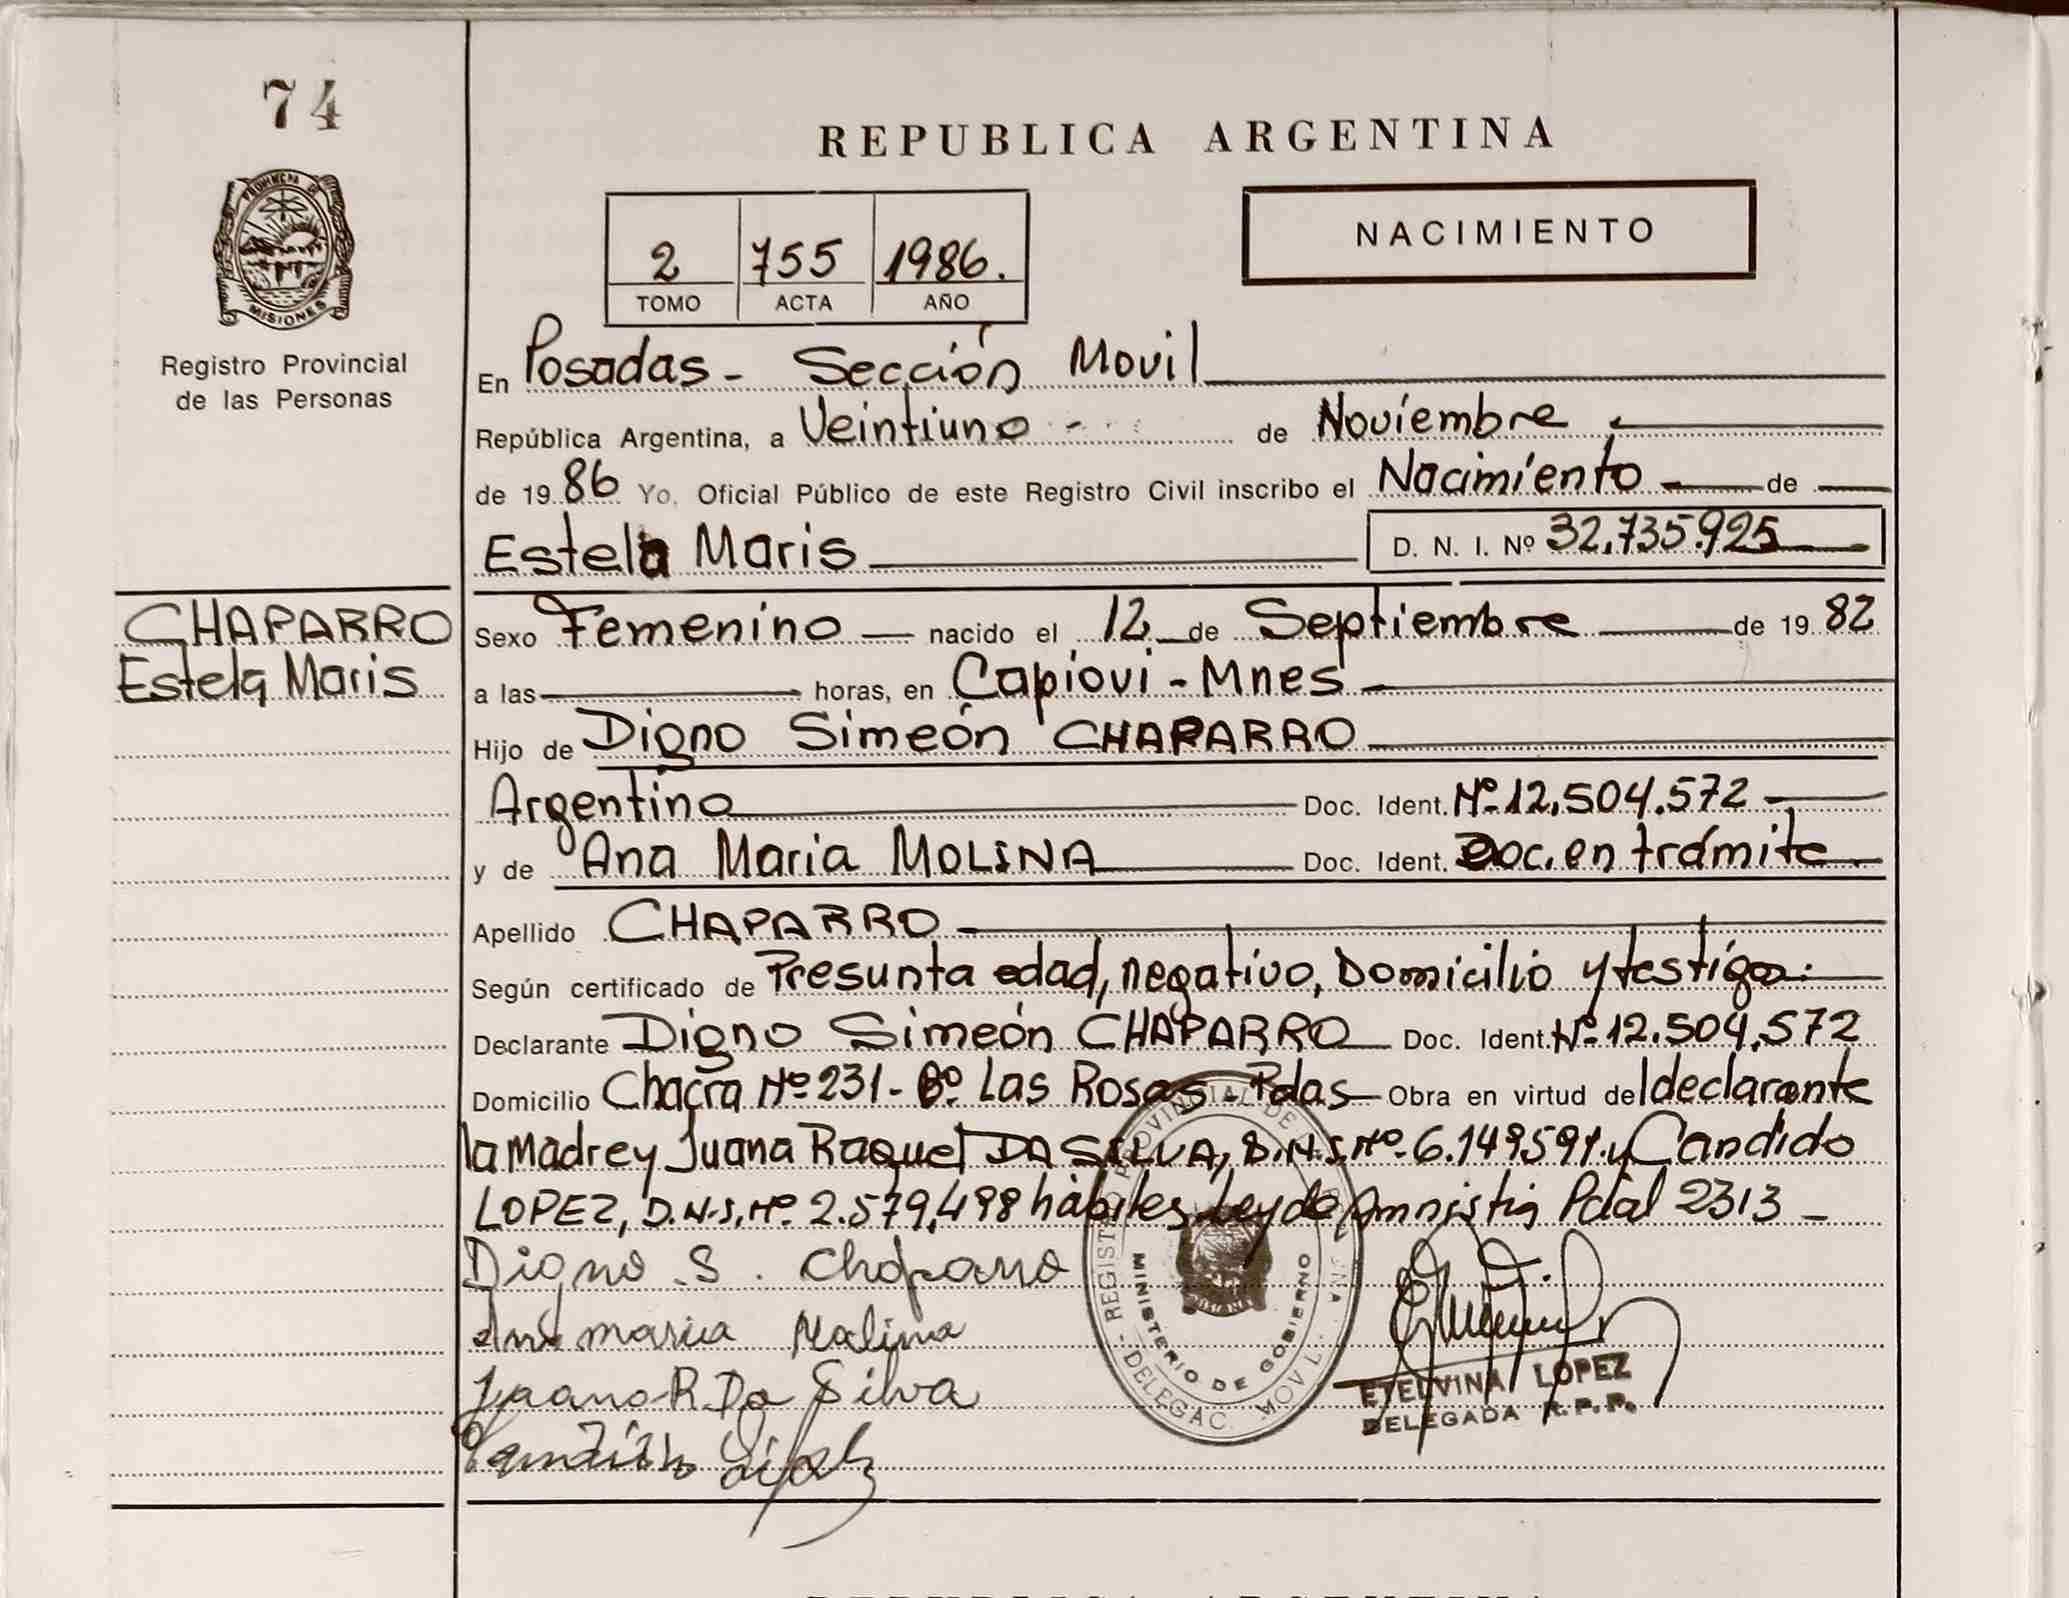 74
REPUBLICA ARGENTINA
PROVINCIA DE MISIONES
Registro Provincial
de las Personas
NACIMIENTO
2 755 1986.
TOMO ACTA AÑO
En Posadas - Sección Movil
República Argentina, a Veintiuno - de Noviembre
de 1986 Yo, Oficial Público de este Registro Civil inscribo el Nacimiento de
Estela Maris D. N. I. Nº 32.735.925
CHAPARRO
Estela Maris
Sexo Femenino nacido el 12 de Septiembre de 1982
a las horas, en Capiovi - Mnes
Hijo de Digno Simeón CHAPARRO
Argentino Doc. Ident. Nº 12.504.572
y de Ana Maria MOLINA Doc. Ident. Doc. en trámite
Apellido CHAPARRO
Según certificado de Presunta edad, negativo, Domicilio y testigos.
Declarante Digno Simeón CHAPARRO Doc. Ident. Nº 12.504.572
Domicilio Chacra Nº 231 - Bº Las Rosas - Pdas Obra en virtud del declarante
la Madre y Juana Raquel DA SILVA, D.N.I. Nº 6.149.591 y Candido
LOPEZ, D.N.I. Nº 2.579.498 hábiles Ley de Amnistia Pcial 2313
Digno S. Chaparro
Ana maria Molina
Juana R. Da Silva
REGISTRO PROVINCIAL DE
MINISTERIO DE GOBIERNO
DELEGAC. MOVIL
ETELVINA LOPEZ
DELEGADA R.P.P.